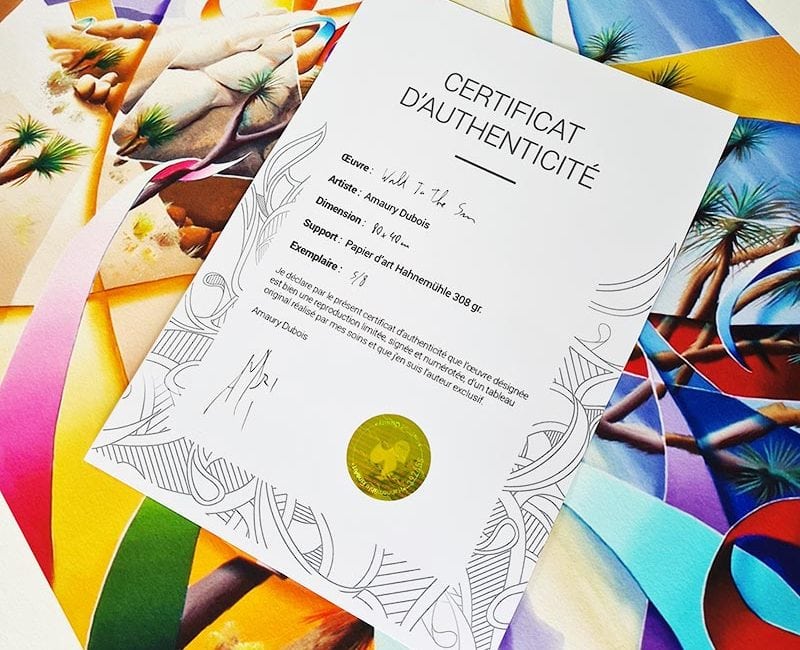 CERTIFICAT
D'AUTHENTICITÉ
Œuvre : Walk To The Sun
Artiste : Amaury Dubois
Dimension : 80x40cm
Support : Papier d'art Hahnemühle 308 gr.
Exemplaire : 5/8
Je déclare par le présent certificat d'authenticité que l'œuvre désignée
est bien une reproduction limitée, signée et numérotée, d'un tableau
original réalisé par mes soins et que j'en suis l'auteur exclusif.
Amaury Dubois